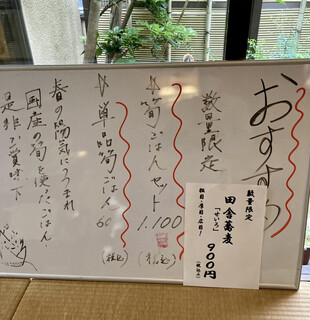 おすすめ
数量限定
筍ごはんセット 1,100 (税込)
単品筍ごはん 60 (税込)
春の陽気にうまれ
国産の筍を使ったごはん。
是非ご賞味下
数量限定
田舎蕎麦
「せいろ」
900円
(税込み)